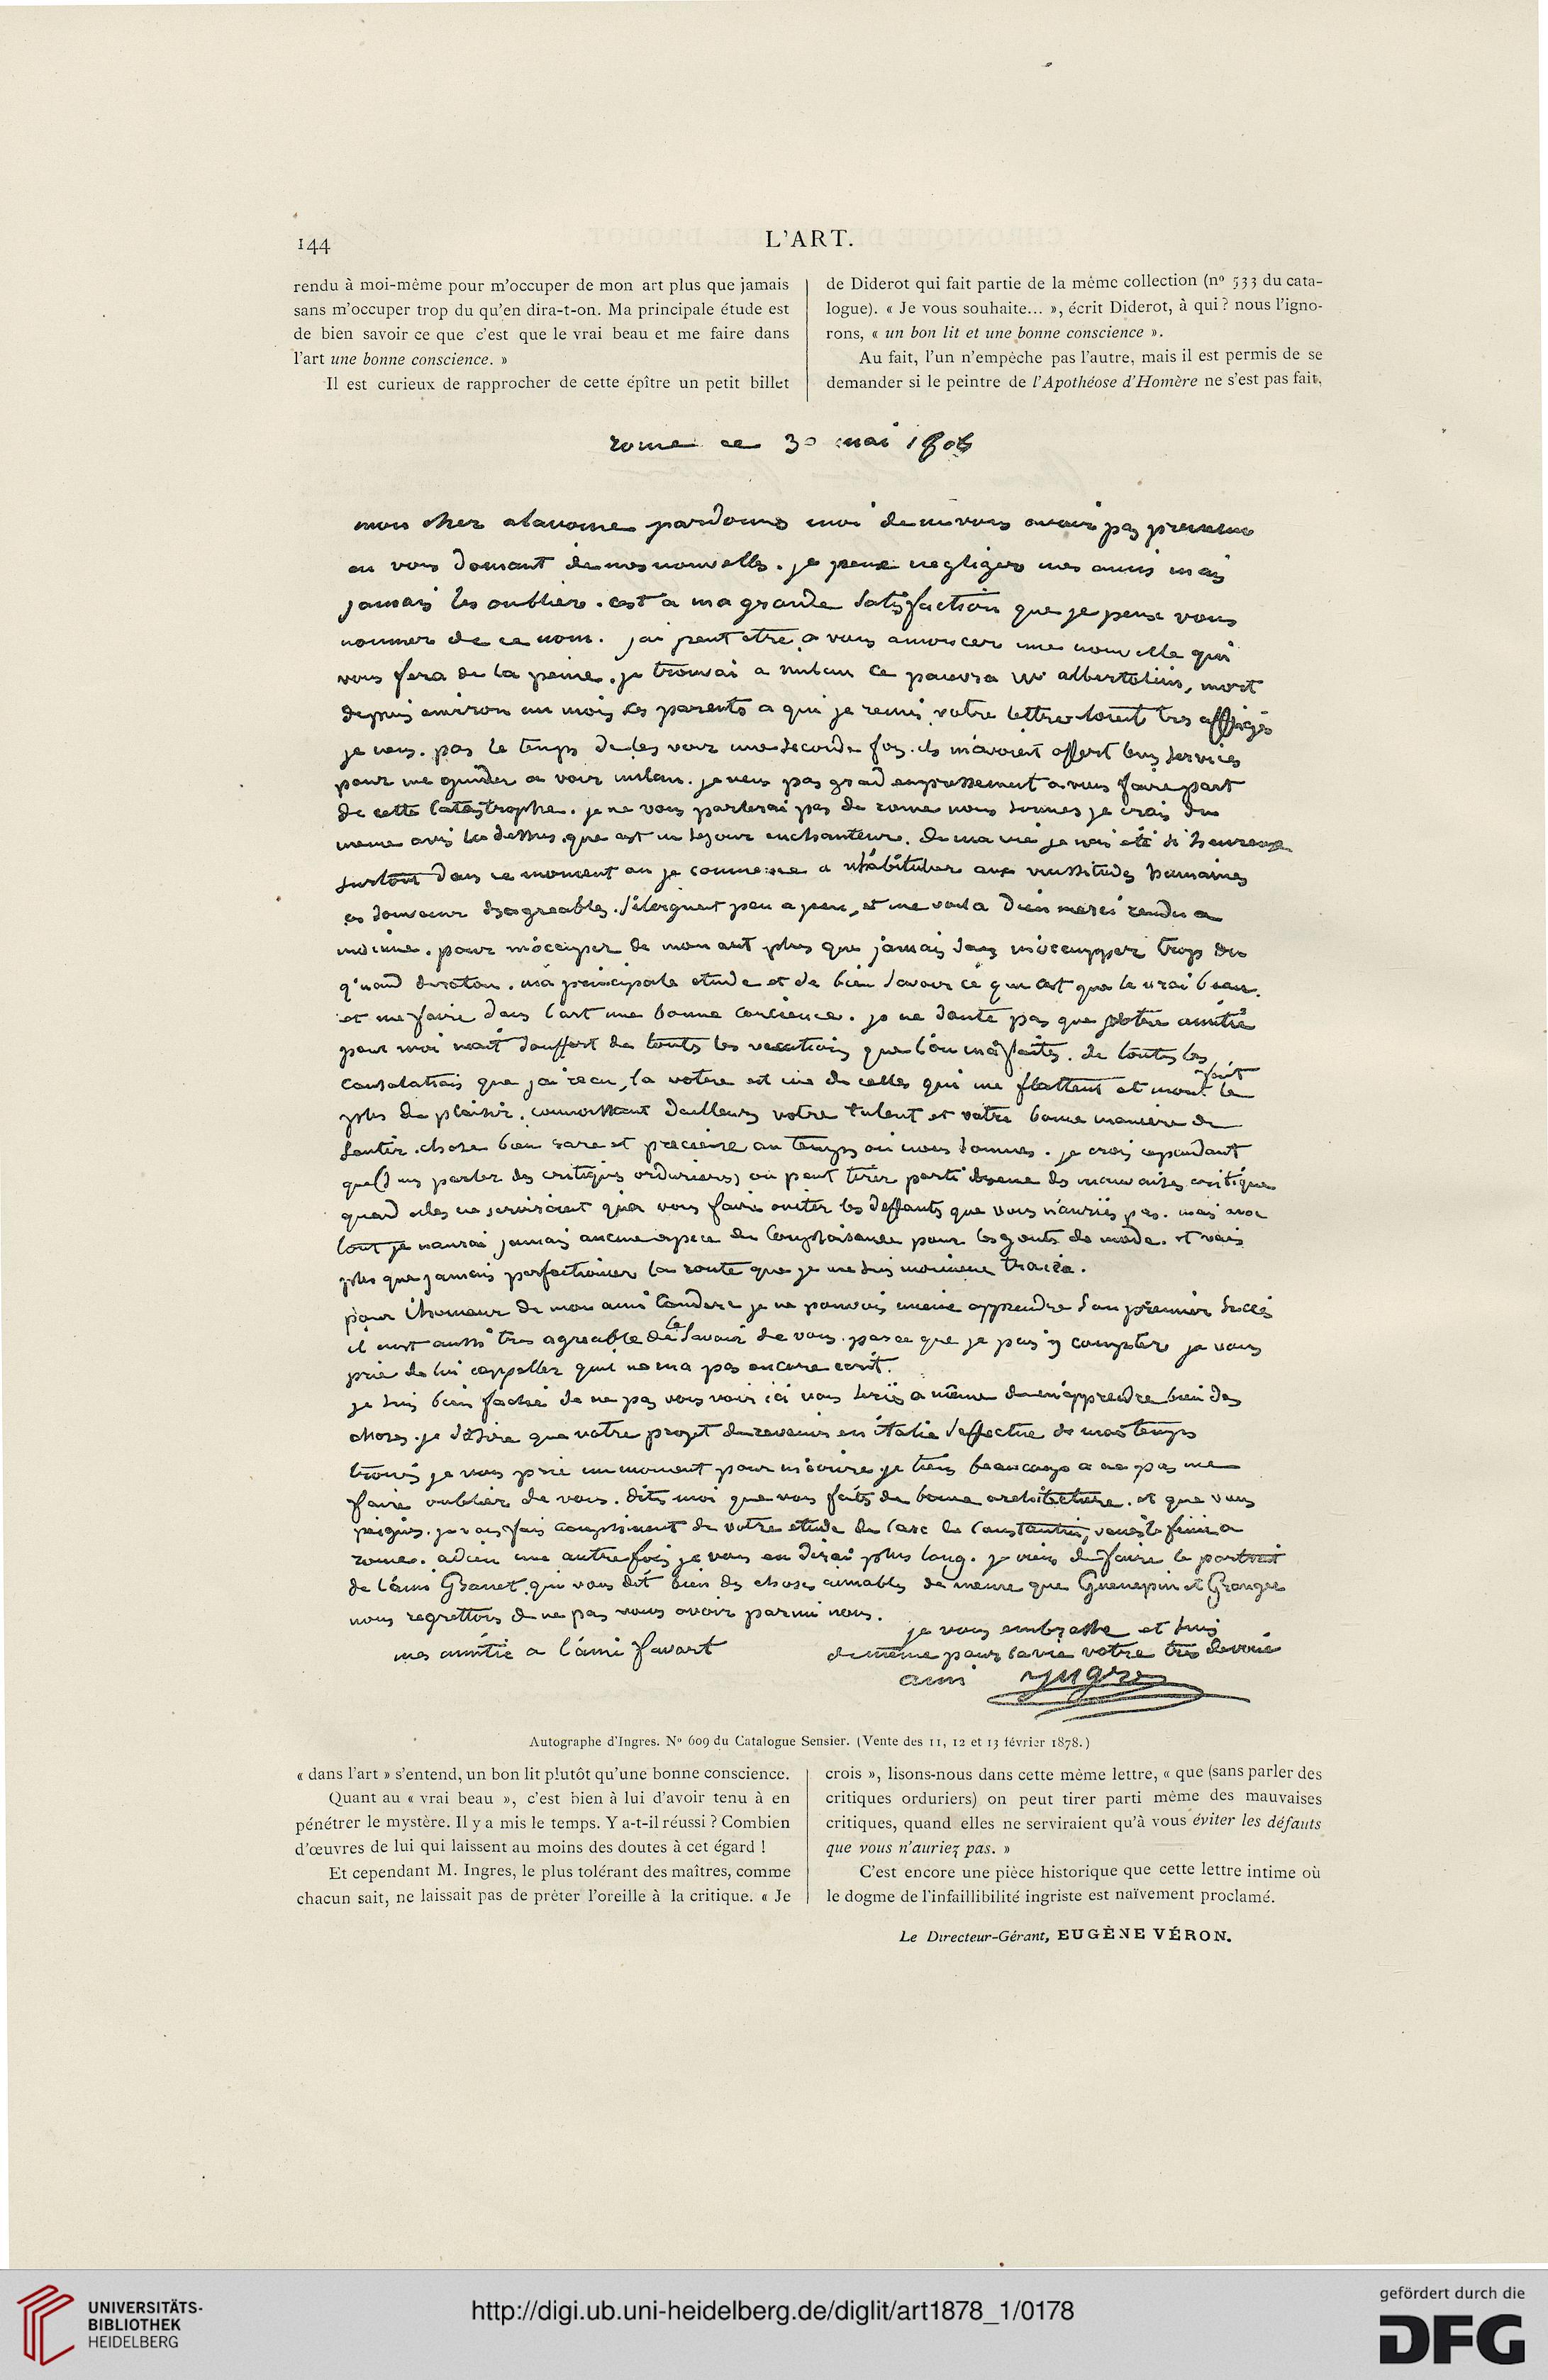 144
L'ART.
rendu à moi-même pour m'occuper de mon art plus que jamais
sans m'occuper trop du qu'en dira-t-on. Ma principale étude est
de bien savoir ce que c'est que le vrai beau et me faire dans
l'art une bonne conscience. »
Il est curieux de rapprocher de cette épître un petit billet
de Diderot qui fait partie de la même collection (nº 533 du cata-
logue). « Je vous souhaite... », écrit Diderot, à qui ? nous l'igno-
rons, « un bon lit et une bonne conscience ».
Au fait, l'un n'empêche pas l'autre, mais il est permis de se
demander si le peintre de l'Apothéose d'Homère ne s'est pas fait,
rome ce 30 mai
mon cher pardonnes moi de ne vous avoir pas prevenu
en vous donnant de mes nouvelles. je peux negliger mes amis mais
jamais les oublier. cest a ma grande satisfaction que je peux vous
nommer de ce nom. jai peut etre a vous annoncer une nouvelle qui
vous fera de la peine. je trouvai a milan ce pauvre mr albertolius, mort
depuis environ un mois ses parents a qui je remis votre lettre sont tres affligés
je neus pas le temps de les voir une seconde fois. ils mavoient offert leurs services
pour me guider a voir milan. je neus pas grand empressement a vous faire part
de cette catastrophe. je ne vous parlerai pas de rome nous sommes je crois du
meme avis la dessus que cest un sejour enchanteur. de ma vie je nai eté si heureux
surtout dans ce moment ou je commence a mhabituer aux vicissitudes humaines
ces souvenir desagreables. s'éloignent peu a peu, et me voila dieu merci rendu a
moi meme. pour m'occuper de mon art plus que jamais sans m'occupper trop du
q'uand diraton. ma principale etude et de bien savoir ce que cest que le vrai beau.
et me faire dans l'art une bonne concience. je ne doute pas que votre amitié
pour moi nait souffert de touts les vexations que l'on ma faites. de toutes les
consolations que jai recu, la votre est une de celles qui me flattent et mont fait le
plus de plaisir. connoissant dailleurs votre talent et votre bonne maniere de
sentir. chose bien rare et precieuse au temps ou nous sommes. je crois cependant
que (s ans parler des critiques orduriers) on peut tirer parti meme des mauvaises critiques
quand elles ne serviroient qua vous faire eviter les deffauts que vous n'auriés pas. mais avec
tout je naurai jamais aucune espece de complaisance pour les gouts de mode. et vais
plus que jamais perfectionner la route que je me suis moimeme tracée.
pour l'honneur de mon ami je ne pouvois mieux apprendre son premier succès
il mest aussi tres agreable de le savoir de vous. parce que je puis y compter je vous
prie de lui rappeller quil ne ma pas encore ecrit.
je suis bien faché de ne pas vous voir ici vous seriés a même de m'apprendre bien des
choses. je désire que votre projet de revenir en italie s'effectue
trouvés je vous prie un moment pour m'ecrire je tiens beaucoup a ne pas me
faire oublier de vous. dites moi que vous faites de bonne architecture. et que vous
peignés. je vous fais compliment de votre etude de l'arc de Constantin, venés le finir a
rome. adieu une autre fois je vous en dirai plus long. je viens de faire le portrait
de l'ami Granet qui vous dit bien des choses aimables de meme que Guenepin et Granger
nous regrettons de ne pas vous avoir parmi nous.
je vous embrasse et suis
mes amitié a l'ami favart
de même pour la vie votre tres devoué
ami Ingres
Autographe d'Ingres. Nº 609 du Catalogue Sensier. (Vente des 11, 12 et 13 février 1878.)
« dans l'art » s'entend, un bon lit plutôt qu'une bonne conscience.
Quant au « vrai beau », c'est bien à lui d'avoir tenu à en
pénétrer le mystère. Il y a mis le temps. Y a-t-il réussi ? Combien
d'œuvres de lui qui laissent au moins des doutes à cet égard !
Et cependant M. Ingres, le plus tolérant des maîtres, comme
chacun sait, ne laissait pas de prêter l'oreille à la critique. « Je
crois », lisons-nous dans cette même lettre, « que (sans parler des
critiques orduriers) on peut tirer parti même des mauvaises
critiques, quand elles ne serviraient qu'à vous éviter les défauts
que vous n'auriez pas. »
C'est encore une pièce historique que cette lettre intime où
le dogme de l'infaillibilité ingriste est naïvement proclamé.
Le Directeur-Gérant, EUGÈNE VÉRON.
UNIVERSITÄTS-
BIBLIOTHEK
HEIDELBERG
http://digi.ub.uni-heidelberg.de/diglit/art1878_1/0178
gefördert durch die
DFG